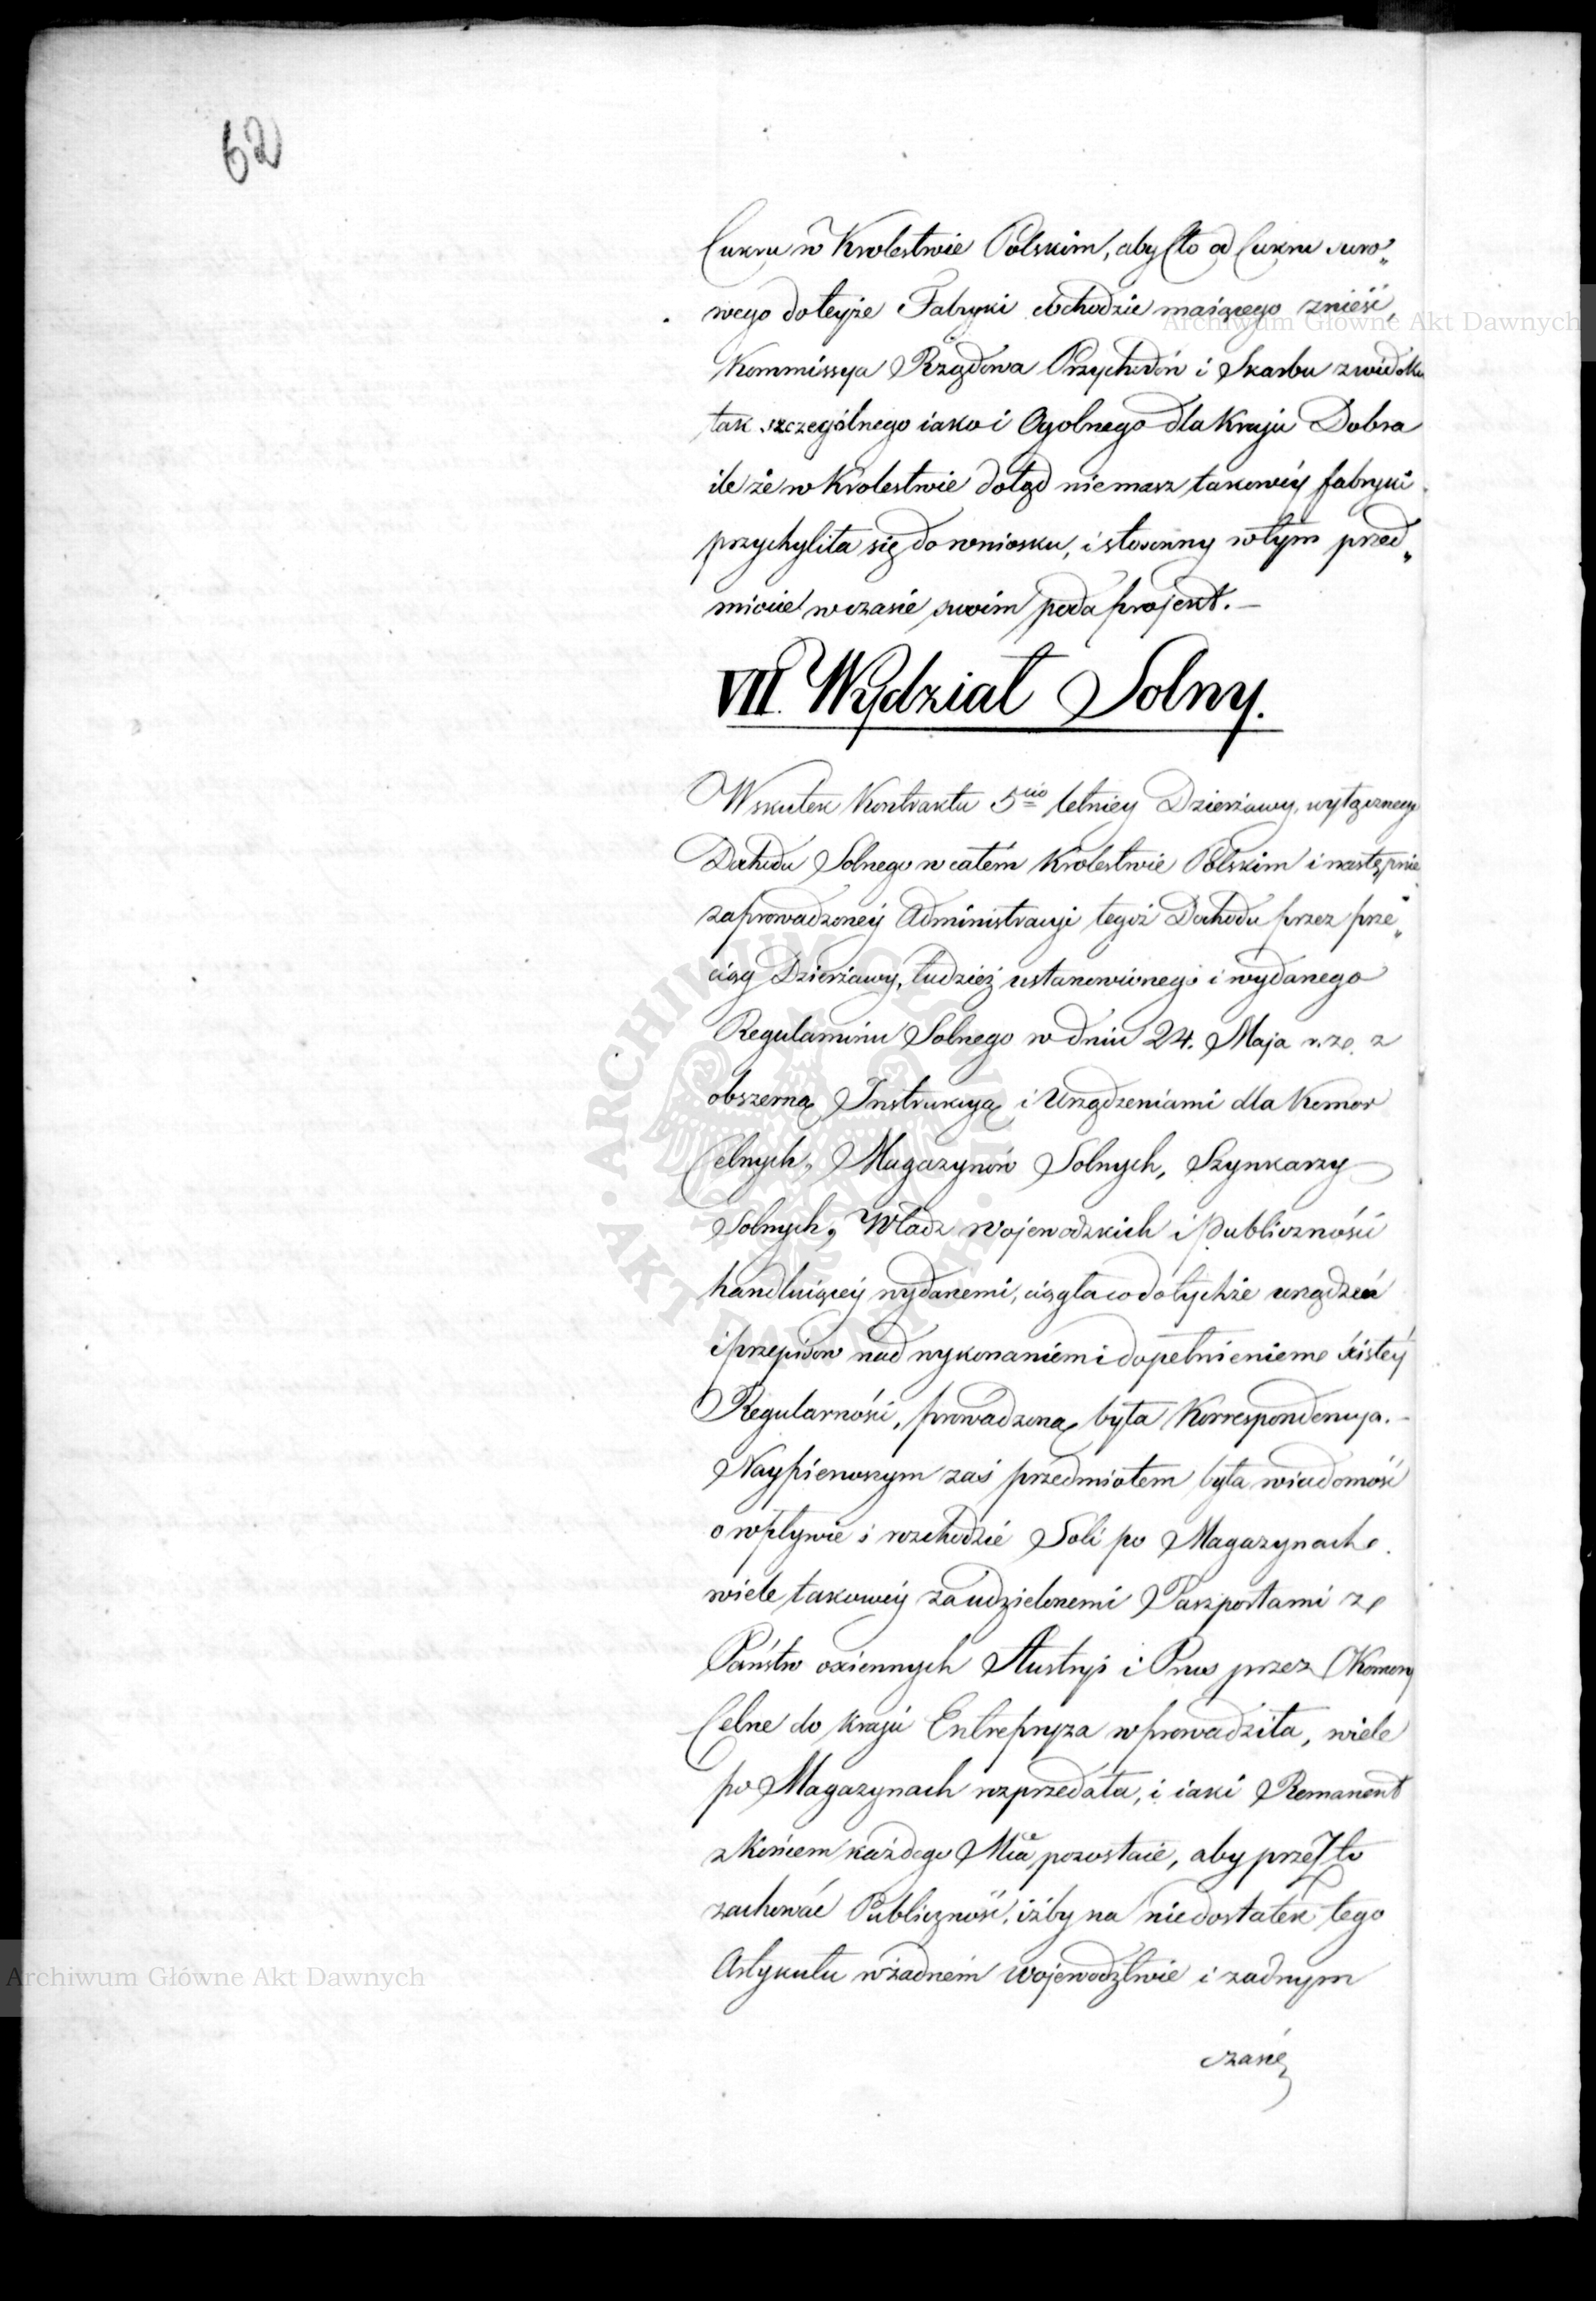 62
Cukru w Krolestwie Polskim, aby Cło od Cukru suro„
wego do teyże Fabryki wchodzić maiącego znieść,
Archiwum Główne Akt Dawnych
Kommissya Rządowa Przychodów i Skarbu z widoku
tak szczególnego iako i Ogolnego dla Kraju Dobra
ile że w Krolestwie dotąd niemasz takowéy fabryki
przychyliła się do wniosku, i stosowny w tym przed„
miocie w czasie swoim poda projekt.—
VII. Wydział Solny.
W skutek Kontraktu 5cio letniey Dzierżawy, wyłącznego
Dochodu Solnego w całém Krolestwie Polskim i następnie
zaprowadzonéy Administracyi tegoż Dochodu przez prze„
ciąg Dzierżawy, tudzież ustanowionego i wydanego
Regulaminu Solnego w dniu 24. Maja r. z. z
obszerną Instrukcyą i Urządzeniami dla Komor
Celnych, Magazynów Solnych, Szynkarzy
Solnych, Władz Wojewodzkich i Publiczności
handluiącéy wydanemi, ciągła co do tychże urządzeń
i przepisow nad wykonaniem i dopełnieniem ścisłéy
Regularności, prowadzoną była Korrespondencya.—
Naypierwszym zaś przedmiotem była wiadomość
o wpływie i rozchodzie Soli po Magazynach.
wiele takowéy za udzielonemi Paszportami z
Państw ościennych Austryi i Prus przez Komory
Celne do Kraju Entrepryza wprowadziła, wiele
po Magazynach rozprzedała, i iaki Remanent
z końcem każdego Mca pozostaie, aby przez to
zachować Publiczność, iżby na niedostatek tego
Artykułu w żadném Wojewodztwie i żadnym
Archiwum Główne Akt Dawnych
czasie
ARCHIWUM GŁÓWNE AKT DAWNYCH